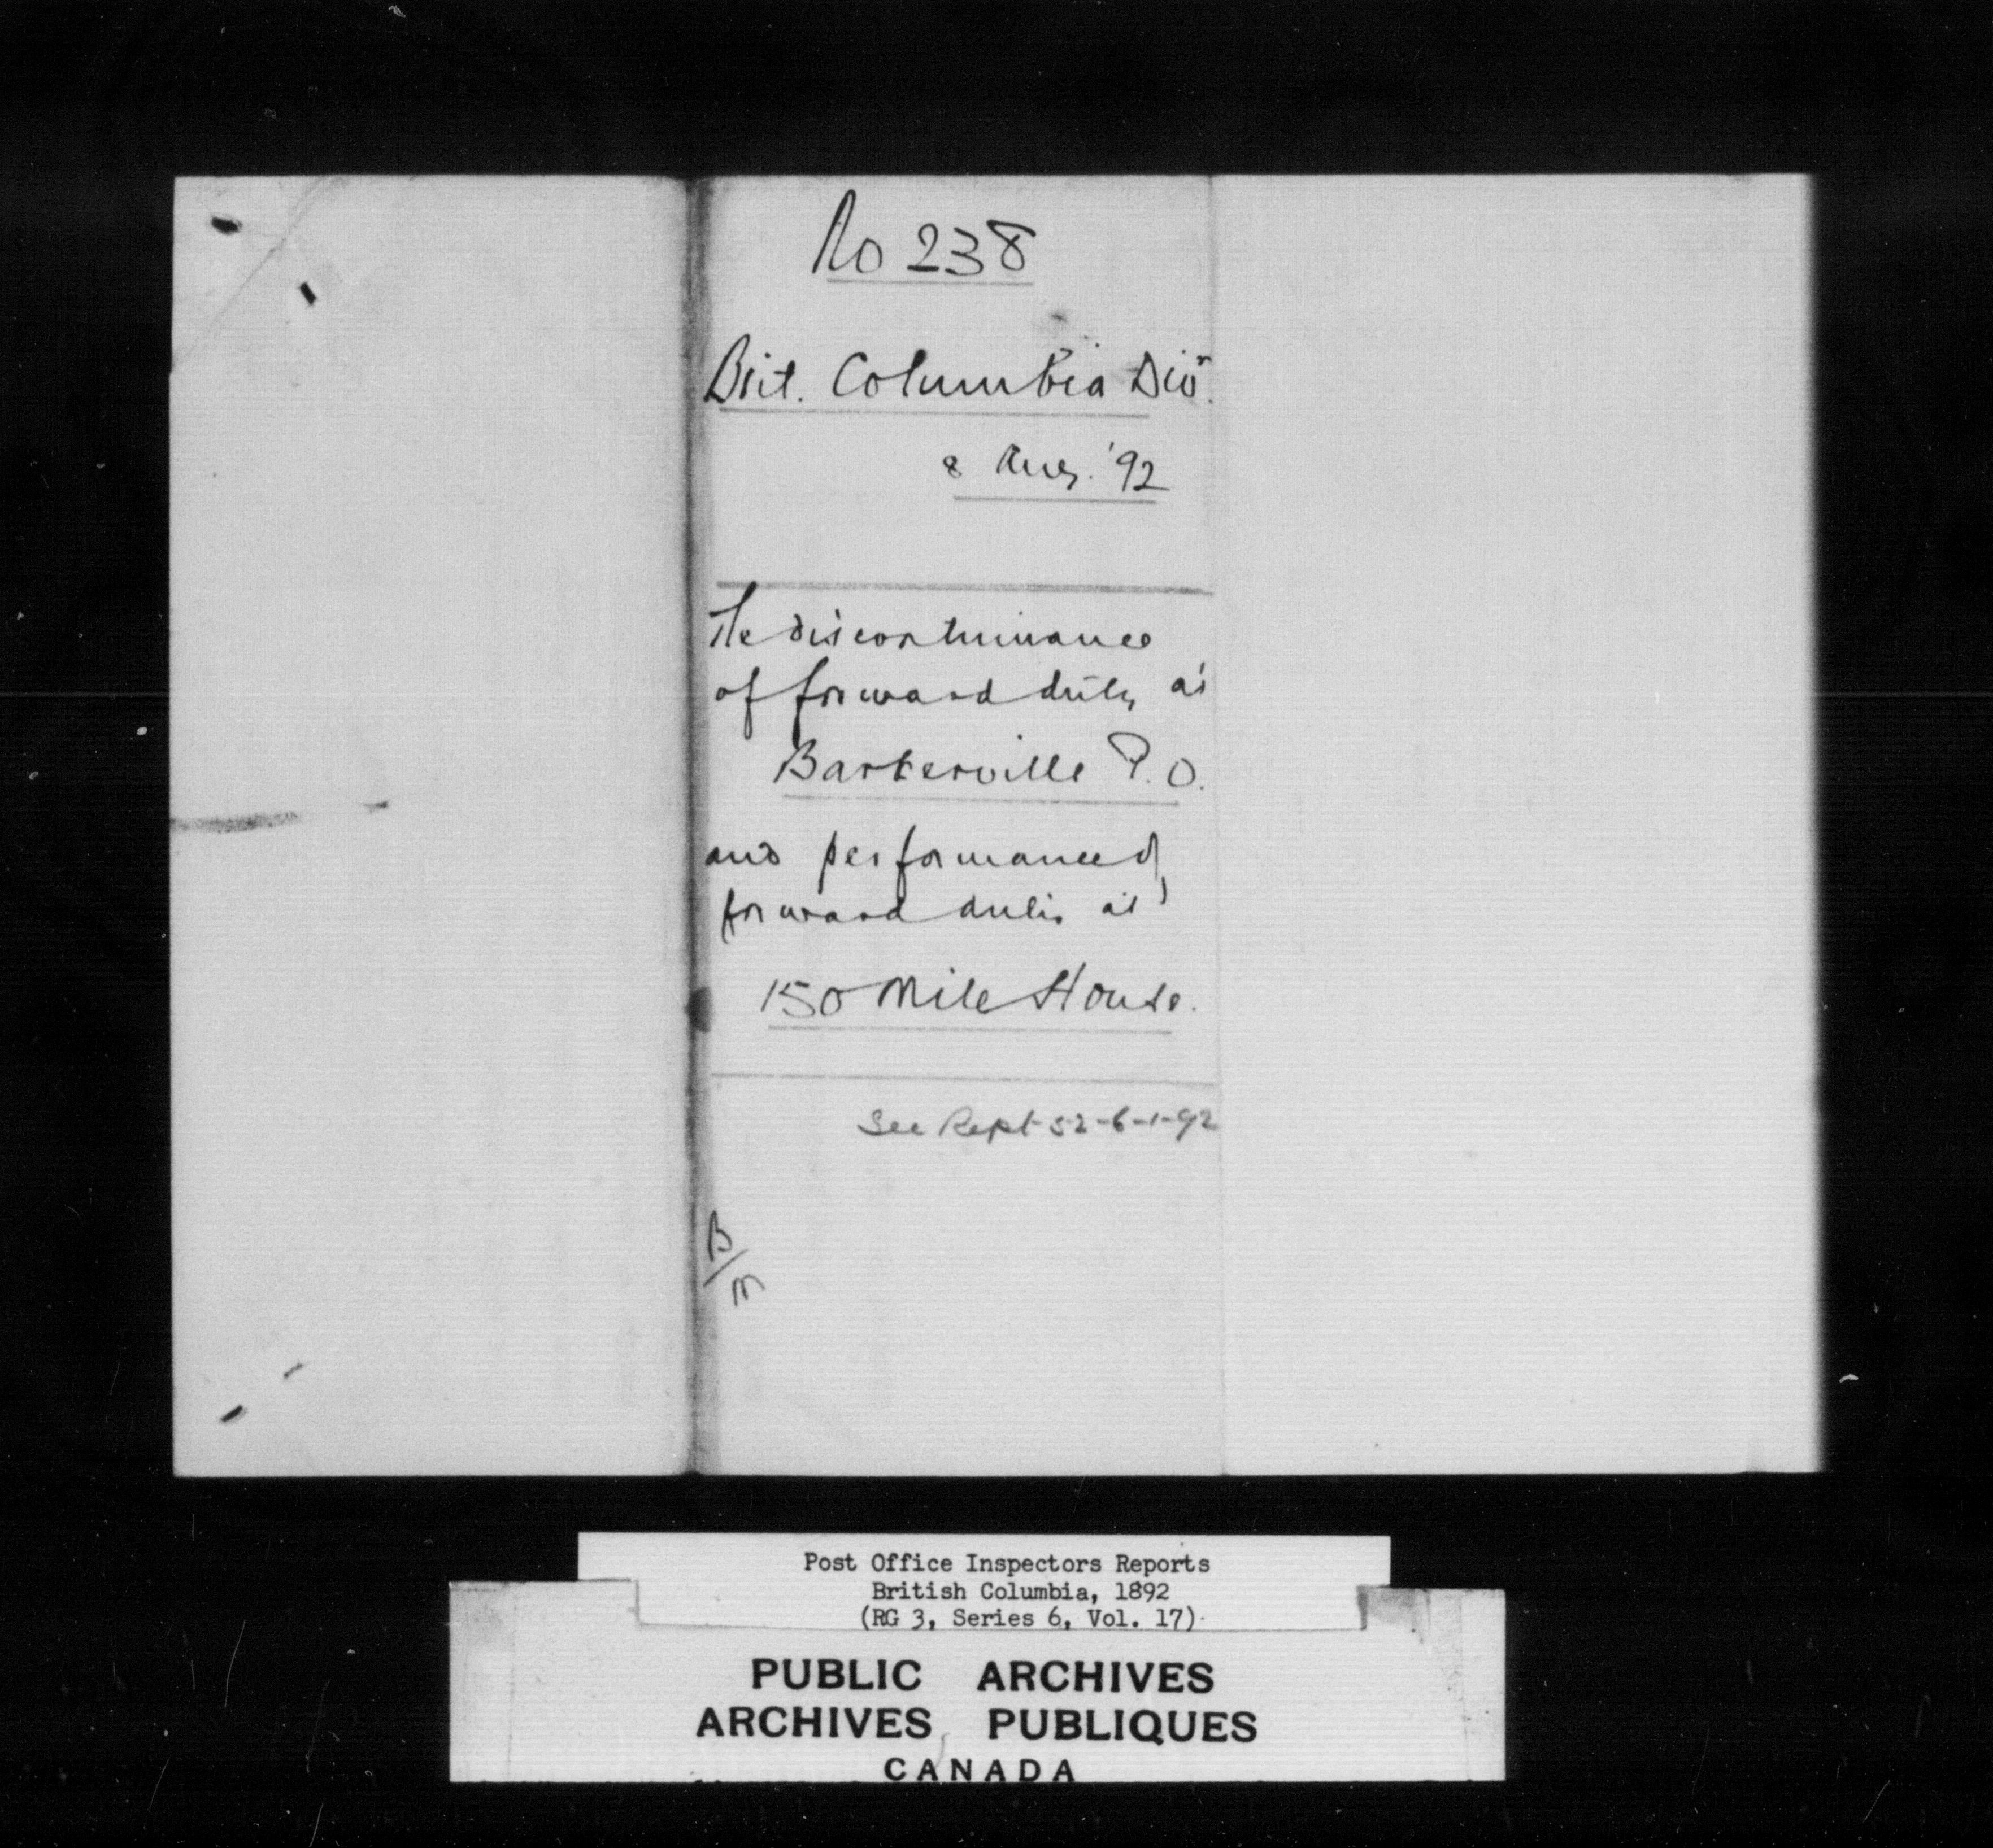 No 238
Brit. Columbia Divn.
8 Aug. '92
The discontinuance
of forward duty at
Barkerville P.O.
and performance of
forward duties at
150 Mile House.
See Rept 52-6-1-92
B/M
Post Office Inspectors Reports
British Columbia, 1892
(RG 3, Series 6, Vol. 17)
PUBLIC ARCHIVES
ARCHIVES PUBLIQUES
CANADA